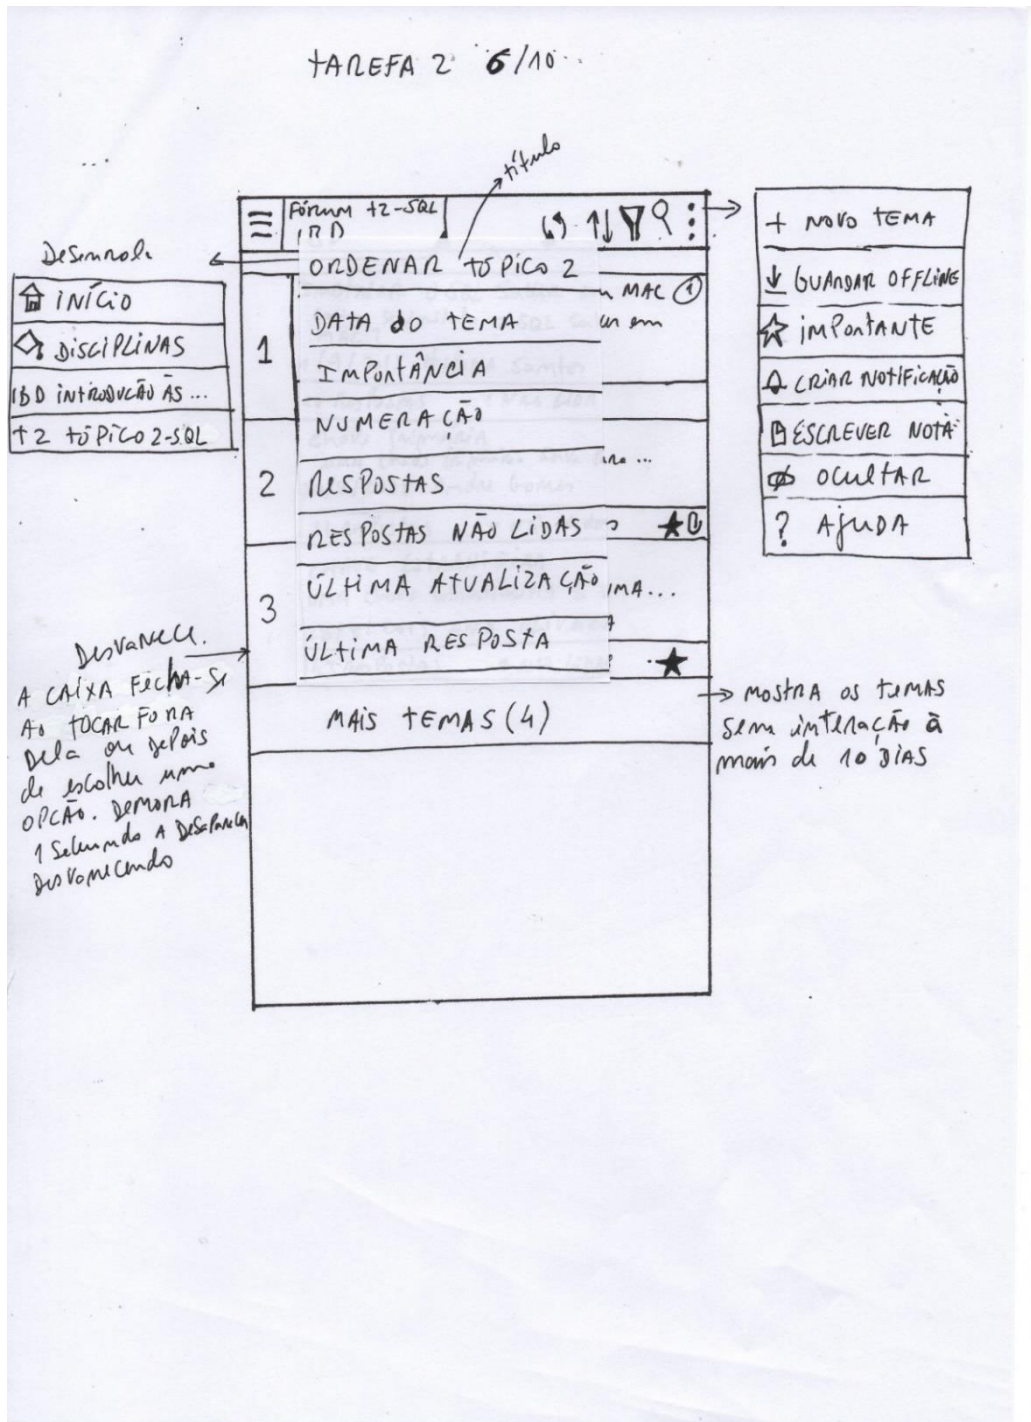 TAREFA 2 6/10
...
título
Fórum T2-SQL
IBD
Desenrola
INÍCIO
DISCIPLINAS
IBD INTRODUÇÃO ÀS ...
T2 TÓPICO 2-SQL
ORDENAR TÓPICO 2
DATA do TEMA
IMPORTÂNCIA
NUMERAÇÃO
RESPOSTAS
RESPOSTAS NÃO LIDAS
ÚLTIMA ATUALIZAÇÃO
ÚLTIMA RESPOSTA
1
MAC 1
em
2
...
3
MA...
MAIS TEMAS (4)
+ NOVO TEMA
GUARDAR OFFLINE
IMPORTANTE
CRIAR NOTIFICAÇÃO
ESCREVER NOTA
OCULTAR
? AJUDA
Desvanece.
A CAIXA FECHA-SE
AO TOCAR FORA
Dela ou depois
de escolher uma
OPÇÃO. DEMORA
1 Segundo A Desaparecer
Desvanecendo
MOSTRA OS TEMAS
sem interação à
mais de 10 DIAS